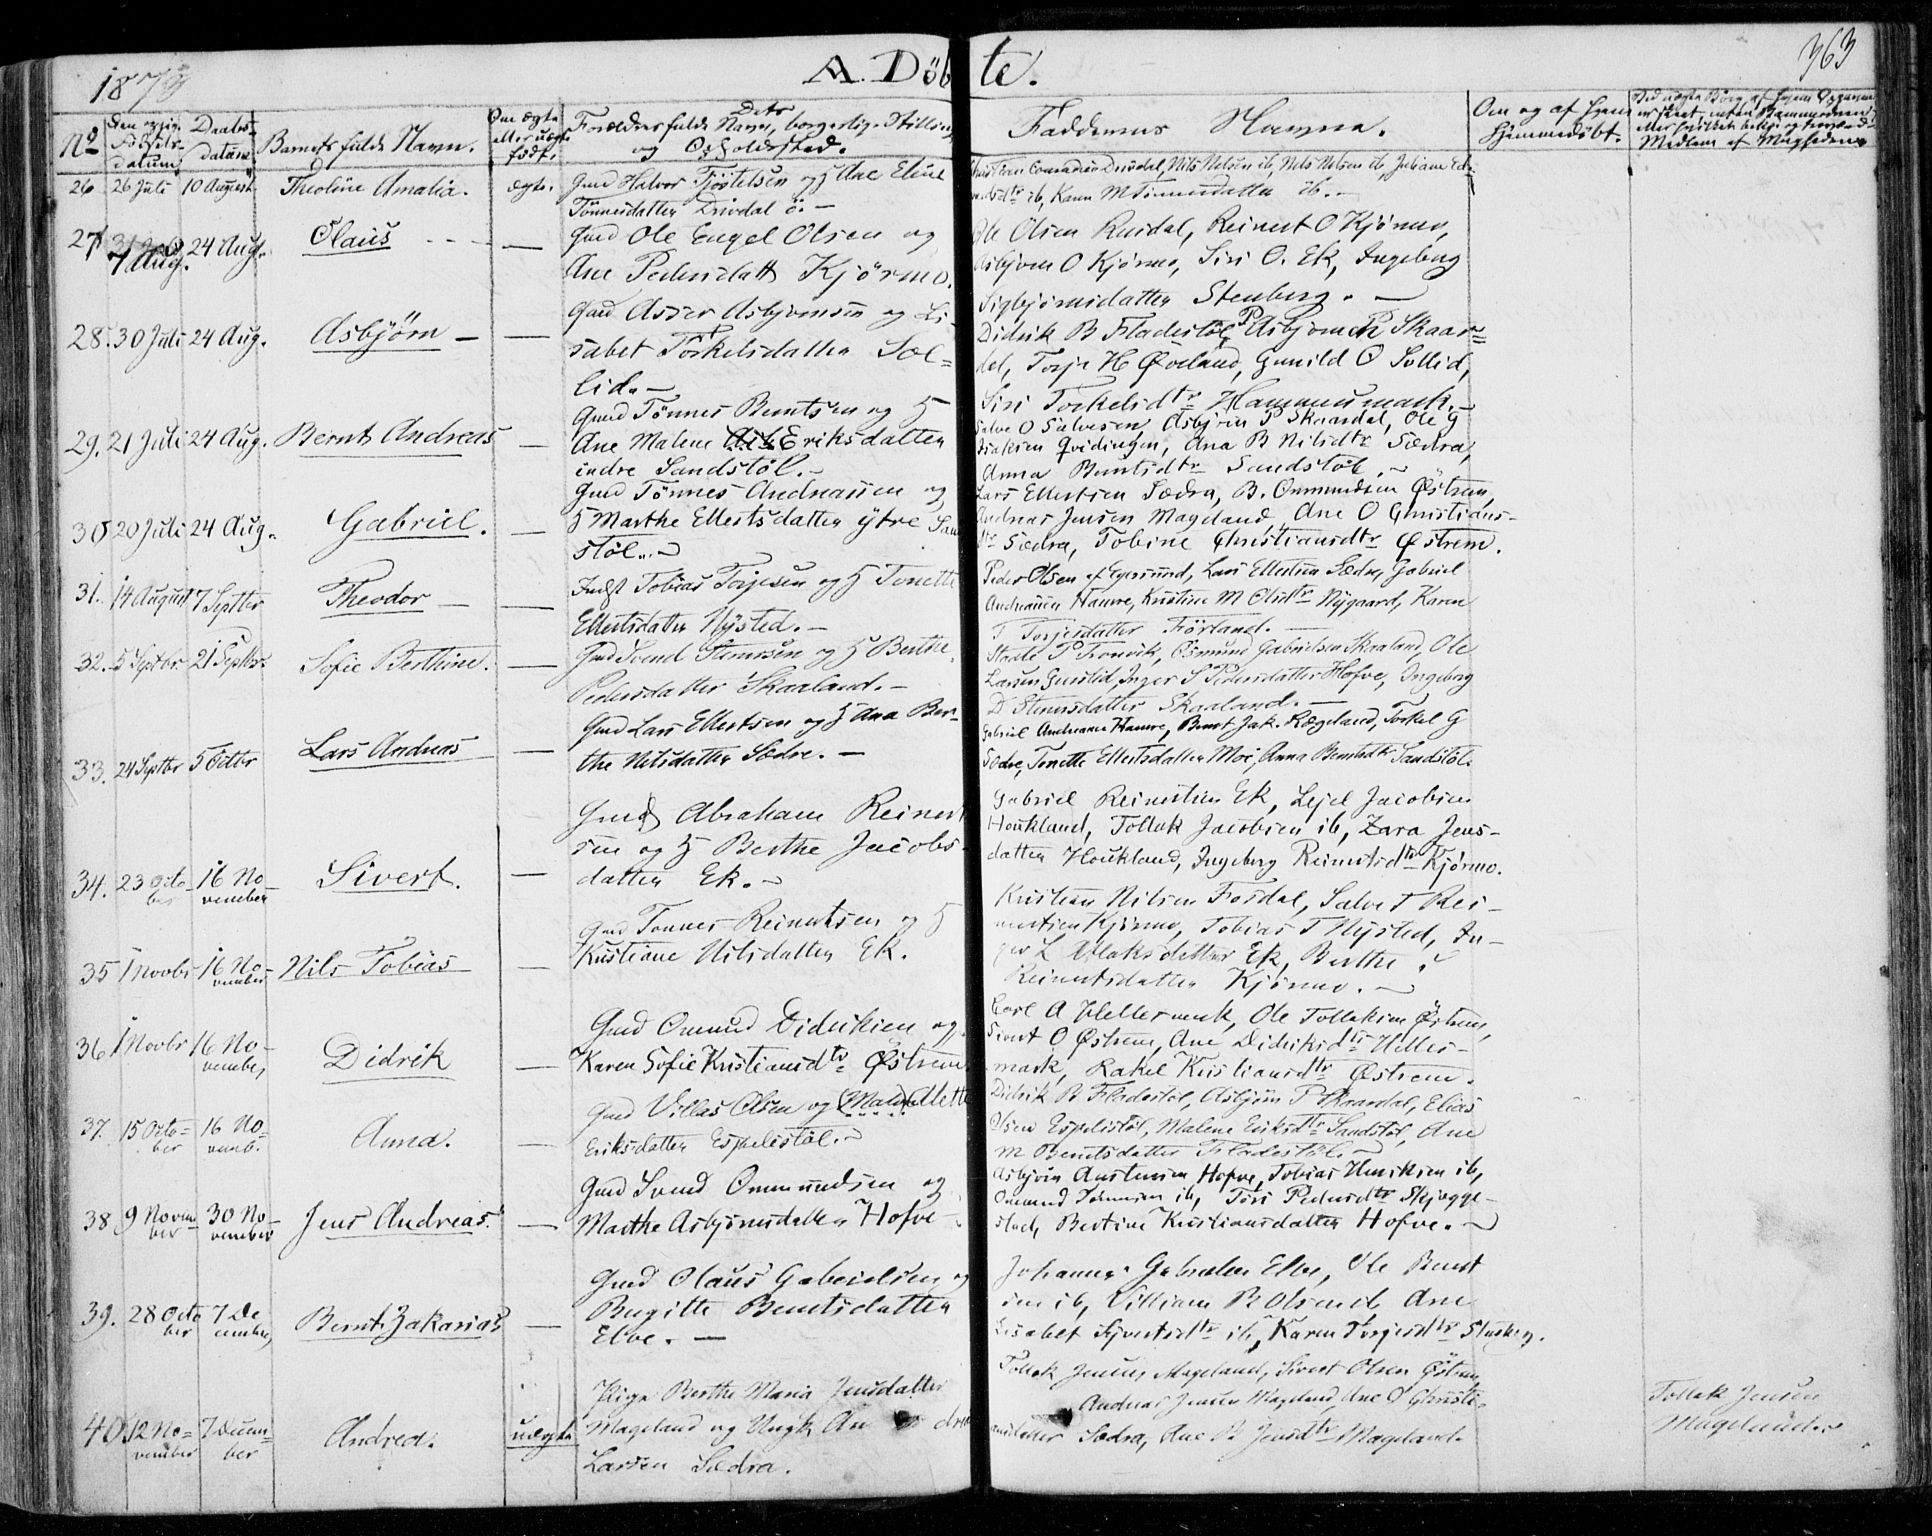 1873
A. Döbte.
363
No
Den opgiv. Födsels-datum.
Daabs-datum.
Barnets fulde Navn.
Om ægte eller uægte födt.
Forældres fulde Navn, borgerlige Stilling og Opholdssted.
Faddernes Navne.
Om og af hvem hjemmedöbt.
26 26 Juli 10 August Theoline Amalia. ægte. Gmd Halvor Fjöstelsen og H Ane Eline
Tönnesdatter Drivdal ö. —
ib, Karen M Tönnesdatter ib. —
27 7 Aug. 24 Aug. Olaus — Gmd Ole Engel Olsen og
Ane Pedersdatt Kjörmo.
Ole Olsen Rusdal, Reinert O Kjörmo,
Asbjörn O Kjörmo, Siri O. Ek, Ingeborg
Sigbjörnsdatter Stenberg. —
28. 30 Juli 24 Aug. Asbjörn — — Gmd Asser Asbjörnsen og Li-
sabet Torkelsdatter Sol-
lid. —
Didrik B Fladestöl, Asbjörn P Skaar=
dal, Torje H Øvrland, Gunild O Sollid,
Siri Torkelsdtr Hammersmark. —
29. 21 Juli 24 Aug. Bernt Andreas — Gmd Tönnes Berntsen og H
Ane Malene Eriksdatter
indre Sandstöl. —
Salve O Salvesen, Asbjörn P Skaardal, Ole G
Isaksen Qvidingen, Ana B Nilsdtr Sædra,
Anna Berntsdtr Sandstöl. —
30 20 Juli 24 Aug. Gabriel. — Gmd Tönnes Andreassen og
H Marthe Ellertsdatter ytre San
stöl. —
Lars Ellertsen Sædra, B. Ommundsen Östrem,
Andreas Jensen Mageland, Ane O Christians-
dtr Sædra, Tobine Christiansdtr Østrem.
31. 14 August 7 Septbr Theodor — — Indst Tobias Torjesen og H Tonette
Ellertsdatter Nysted. —
Peder Olsen af Egersund, Lars Ellertsen Sædra, Gabriel
Andreassen Hamre, Kristine M Olsdtr Nygaard, Karen
T Torjesdatter Förland. —
32. 5 Septbr 21 Septbr. Sofie Berthine. — Gmd Svend Stenersen og H Berthe
Pedersdatter Skaaland. —
P Tronvik, Osmund Gabrielsen Skaaland, Ole
Larsen Guulid, Inger S Pedersdatter Hofve, Ingeborg
D Stenersdatter Skaaland. —
33. 24 Septbr 5 Octbr Lars Andreas — Gmd Lars Ellertsen og H Ana Ber-
the Nilsdatter Sædre. —
Gabriel Andreassen Hamre, Bernt Jak. Rægeland, Torkel G
Sædre, Tonette Ellertsdatter Moi, Anna Berntsdtr Sandstöl.
34. 23 Octo-ber 16 No-vember Sivert. — Gmd Abraham Reinert
sen og H Berthe Jacobs-
datter Ek. —
Gabriel Reinertsen Ek, Lejel Jacobsen
Houkland, Tollak Jacobsen ib, Zara Jens-
datter Houkland, Ingeborg Reinertsdtr Kjörmo.
35 1 Novbr 16 No-vember Nils Tobias — Gmd Tönnes Reinertsen og H
Kristiane Nilsdatter Ek.
Kristian Nilsen Fosdal, Salve T Rei-
nertsen Kjörmo, Tobias T Nysted, In-
ger L Aslaksdatter Ek, Berthe
Reinertsdatter Kjörmo. —
36 1 Novbr 16 No-vember Didrik — Gmd Omund Didriksen og
Karen Sofie Kristiansdtr Østrem
Carl A Hellesmark, Ole Tollaksen Östrem,
Sivert O Østrem, Ane Didriksdtr Helles-
mark, Rakel Kristiansdtr Østrem.
37. 15 Octo=ber 16 No=vemb. Anna. — Gmd Villas Olsen og (Malene) Alette
Eriksdatter Espelistöl. —
Didrik B Fladestöl, Asbjörn P Skaardal, Elias
Olsen Espelistöl, Malene Eriksdtr Sandstöl, Ane
M Berntsdatter Fladestöl. —
38 9 Novem-ber 30 No-vember Jens Andreas. — Gmd Svend Ommundsen og
Marthe Asbjörnsdatter Hofve —
Asbjörn Austensen Hofve, Tobias Henriksen ib,
Ommund Tönnesen ib, Töri Pedersdtr Skjegge-
stad, Bertine Kristiansdatter Hofve. —
39. 28 Octo ber 7 De cember, Bernt Zakarias — Gmd Olaus Gabrielsen og
Birgitte Berntsdatter
Elve. —
Johannes Gabrielsen Elve, Ole Bernt
sen ib, Villiam B Olsen ib, Ane
Lisabet Sjvertsdtr ib, Karen Torgersdtr Stenberg.
40. 12 No=vember 7 Decem=ber Andrea. uægte Pige Berthe Maria Jensdatter
Mageland og Ungk An dreas
Larsen Sædra.
Tollak Jensen Mageland, Sivert Olsen Östrem
Andreas Jensen Mageland, Ane O Christi-
ansdatter Sædra, Ane B Jensdtr Mageland.
Tollak Jensen
Mageland.